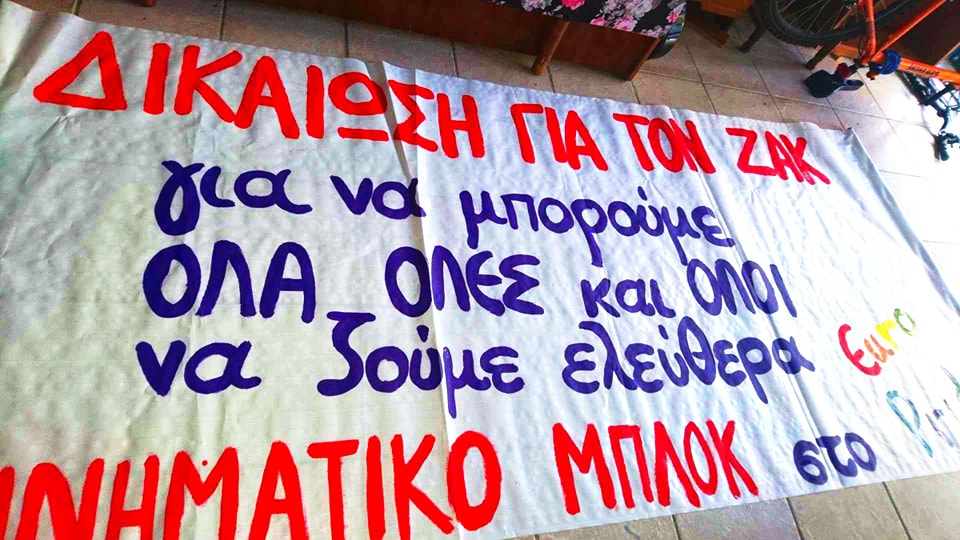 ΔΙΚΑΙΩΣΗ ΓΙΑ ΤΟΝ ΖΑΚ
για να μπορούμε
ΟΛΑ ΟΛΕΣ και ΟΛΟΙ
να ζούμε ελεύθερα
ΙΝΗΜΑΤΙΚΟ ΜΠΛΟΚ στο
Euro